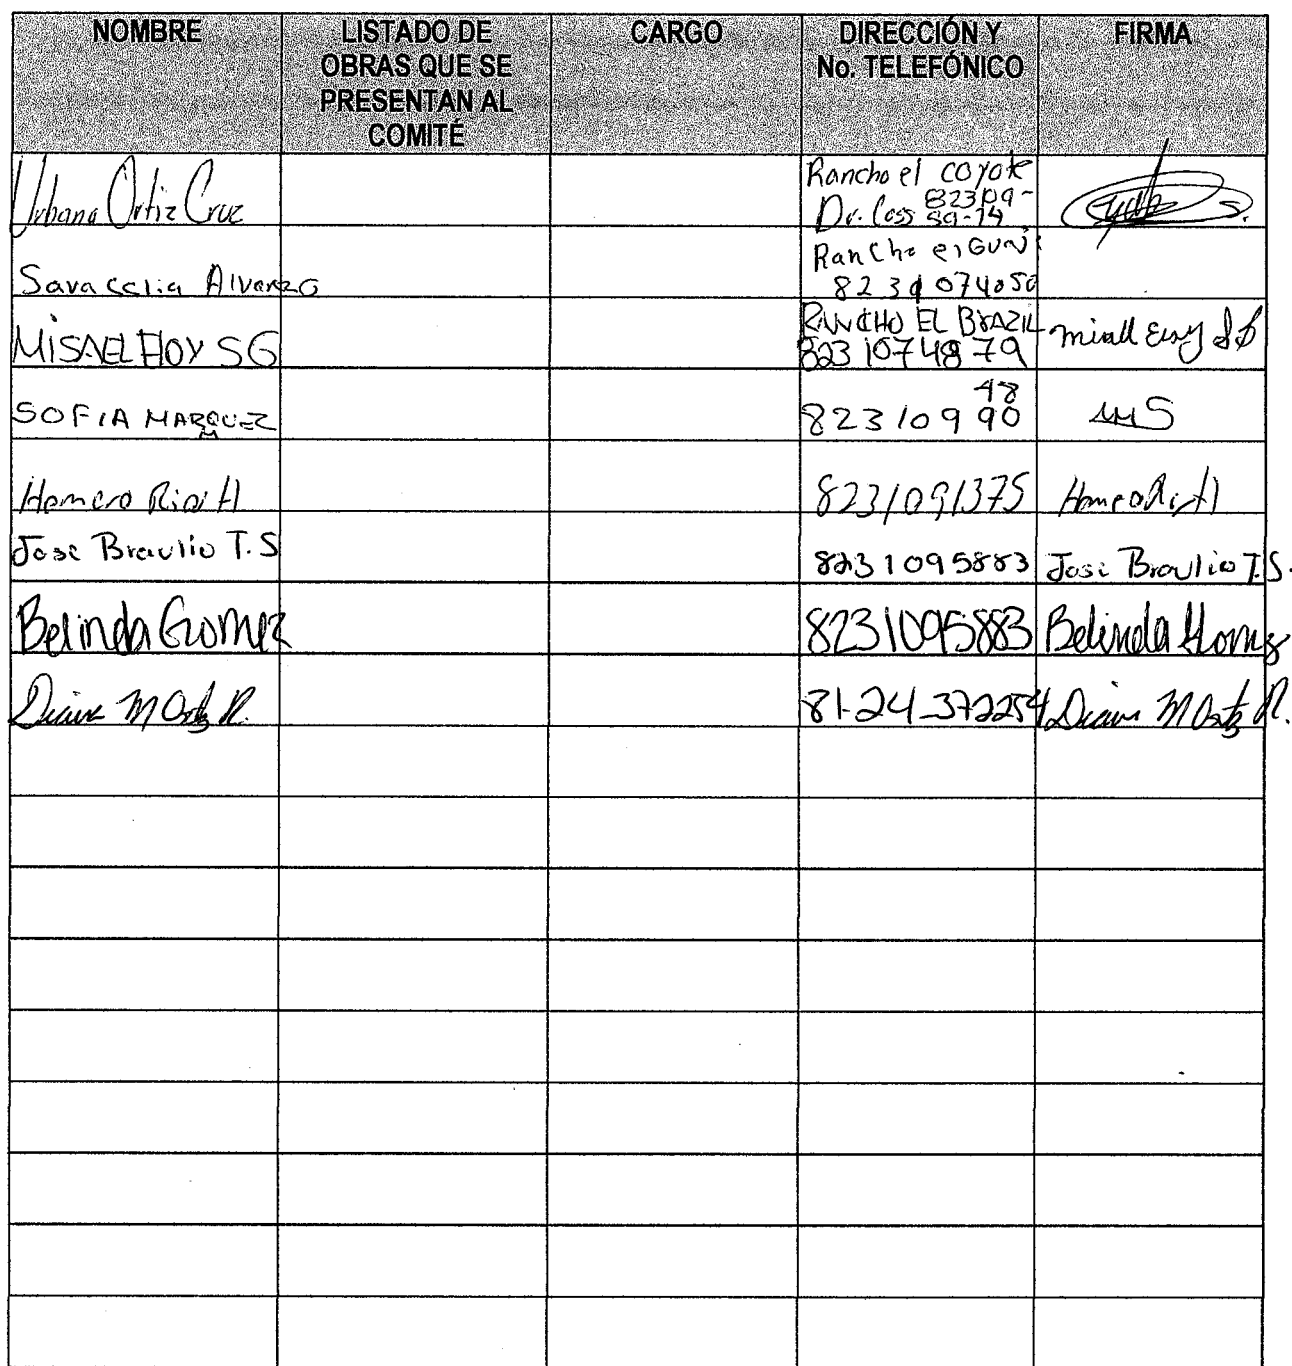 NOMBRE
LISTADO DE
OBRAS QUE SE
PRESENTAN AL
COMITÉ
CARGO
DIRECCIÓN Y
No. TELEFÓNICO
FIRMA
Urbana Ortiz Cruz
Rancho el coyote
Dr. Coss
Rancho el
MISAEL ELOY SG
RANCHO EL BRAZIL
8231074879
SOFIA MARQUEZ
M
48
823109 90
Homero Rios H
8231091375
Jose Braulio T.S
8231095883
Jose Braulio T.S.
Belinda Gomez
8231095883
Belinda Gomez
Diana M Ortz R.
81-24-372254
Diana M Ortz R.